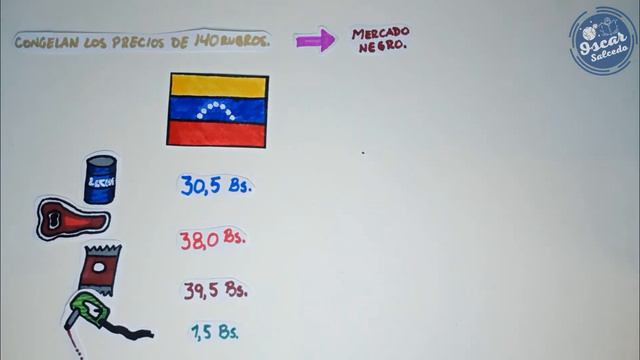 CONGELAN LOS PRECIOS DE 140 RUBROS.
MERCADO
NEGRO.
Oscar
Salcedo
LECHE
30,5 Bs.
38,0 Bs.
39,5 Bs.
1,5 Bs.